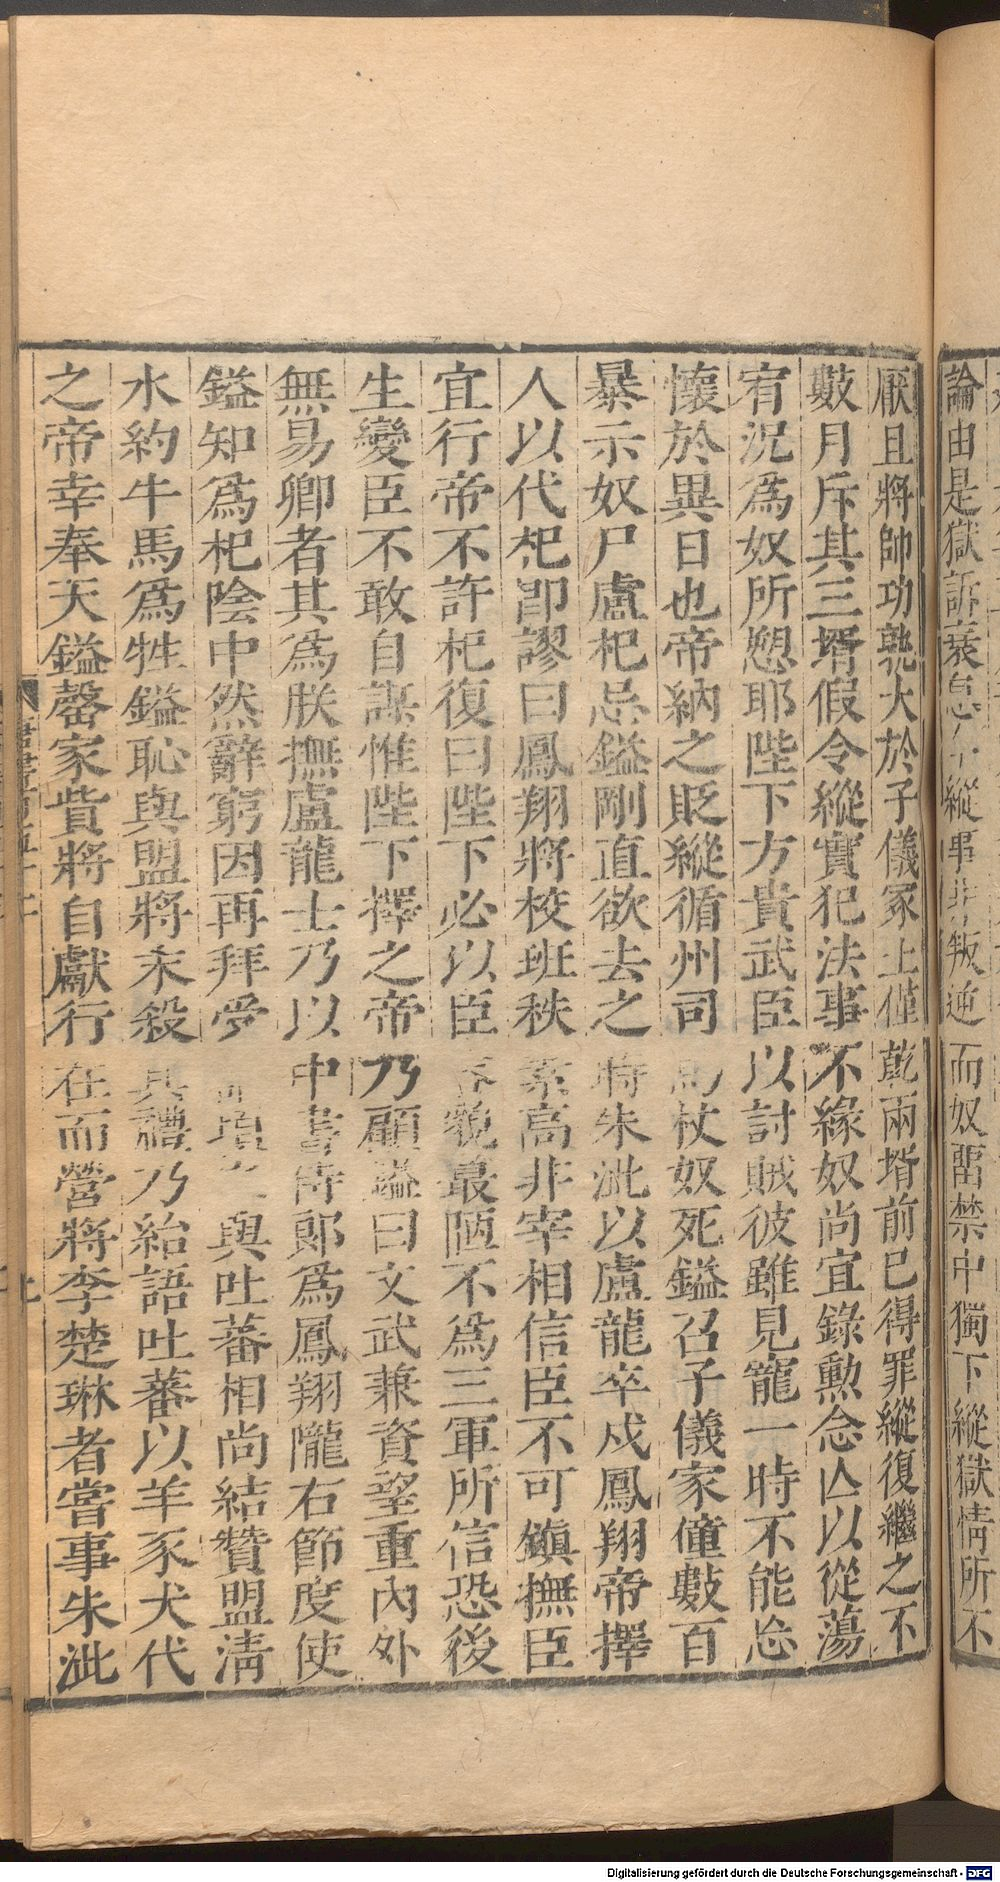 論由是獄訴衰息今縱事非叛逆而奴留禁中獨下縱獄情所不
厭且將帥功孰大於子儀冢土僅乾兩壻前已得罪縱復繼之不
數月斥其三壻假令縱實犯法事不緣奴尚宜錄勳念亾以從蕩
宥況爲奴所愬耶陛下方貴武臣以討賊彼雖見寵一時不能忘
懷於異日也帝納之貶縱循州司馬杖奴死鎰召子儀家僮數百
暴示奴尸盧杞忌鎰剛直欲去之時朱泚以盧龍卒戍鳳翔帝擇
人以代杞卽謬曰鳳翔將校班秩素高非宰相信臣不可鎭撫臣
宜行帝不許杞復曰陛下必以臣容貌最陋不爲三軍所信恐後
生變臣不敢自謀惟陛下擇之帝乃顧鎰曰文武兼資望重內外
無易卿者其爲朕撫盧龍士乃以中書侍郎爲鳳翔隴右節度使
鎰知爲杞陰中然辭窮因再拜受詔頃之與吐蕃相尚結贊盟淸
水約牛馬爲牲鎰恥與盟將末殺其禮乃紿語吐蕃以羊豕犬代
之帝幸奉天鎰罄家貲將自獻行在而營將李楚琳者嘗事朱泚
Digitalisierung gefördert durch die Deutsche Forschungsgemeinschaft - DFG